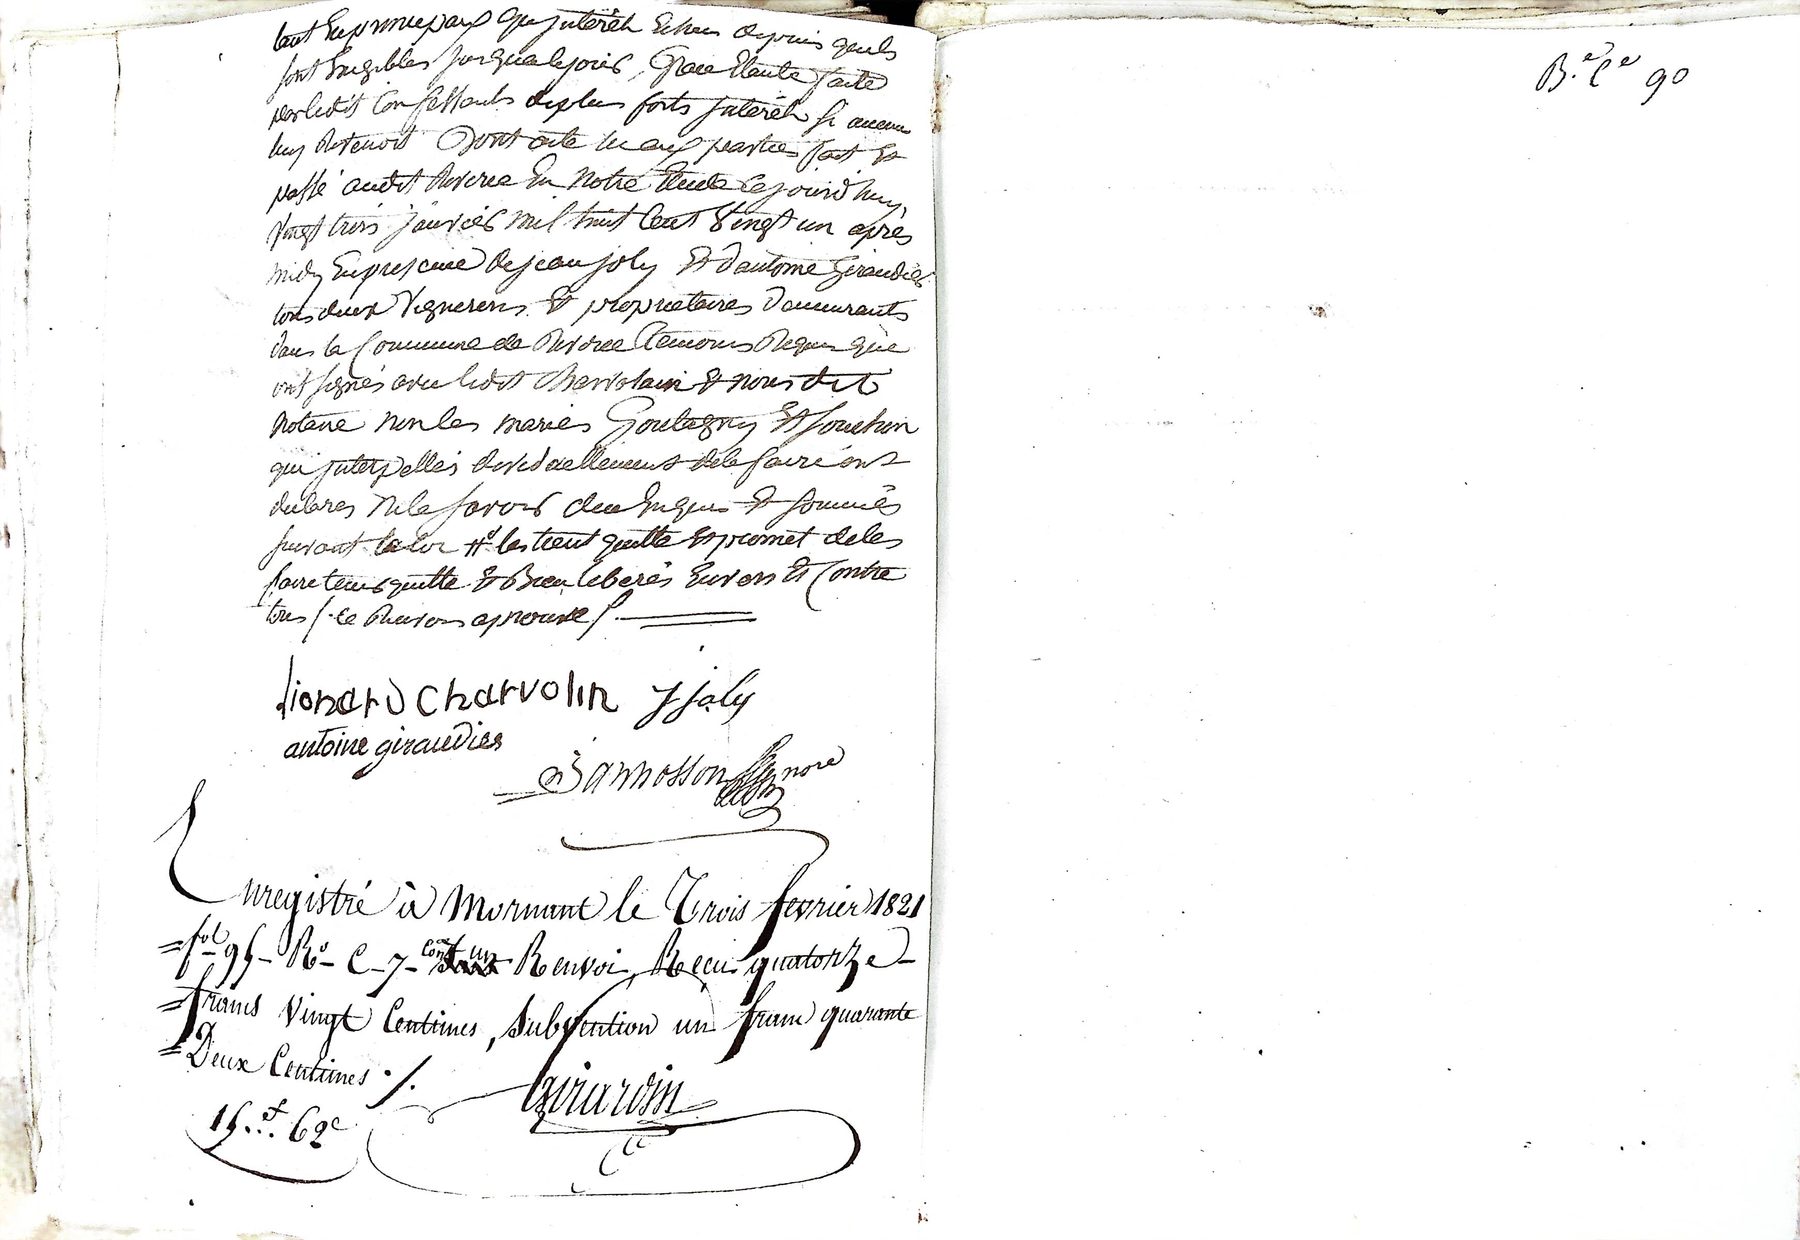 tant en principaux qu'intérêts Echeus depuis quels
sont Exigibles jusqua lejour, Grace Etante faite
parledit Confessants deplus forts jnterêts si aucun
luy Revenoit Dont acte lu aux parties fait Et
passé audit Riverie En Notre Etude Cejourd'huy
Vingt trois janvier Mil huit Cent Vingt un après
midy Enpresence dejean joly Et d'antoine Giraudier
tous deux Vignerons Et proprietaires demeurants
dans la Commune de Riverie temoins Requis qui
ont signés avec ledit Charvolain Et nous dit
Notaire Non les mariés Goutagny Et souchon
qui jnterpellés dele faire ont
declares Nele savoir deu Enquis Et sommés
suivant la loi # les tient quitte Et promet deles
faire tenir quitte Et Bien liberés Envers Et Contre
tous /. Ce Renvois aprouvé /.
lionard Charvolin J joly
antoine giraudier
Bannosson nore
Enregistré à Mornant le Trois fevrier 1821
= fol 95 - Ro - C - 7 - Cont un Renvoi, Recu quatorze -
= francs Vingt Centimes, Subvention un franc quarante
= Deux Centimes ./.
15 et 62c
Girardin
B.e C e 90